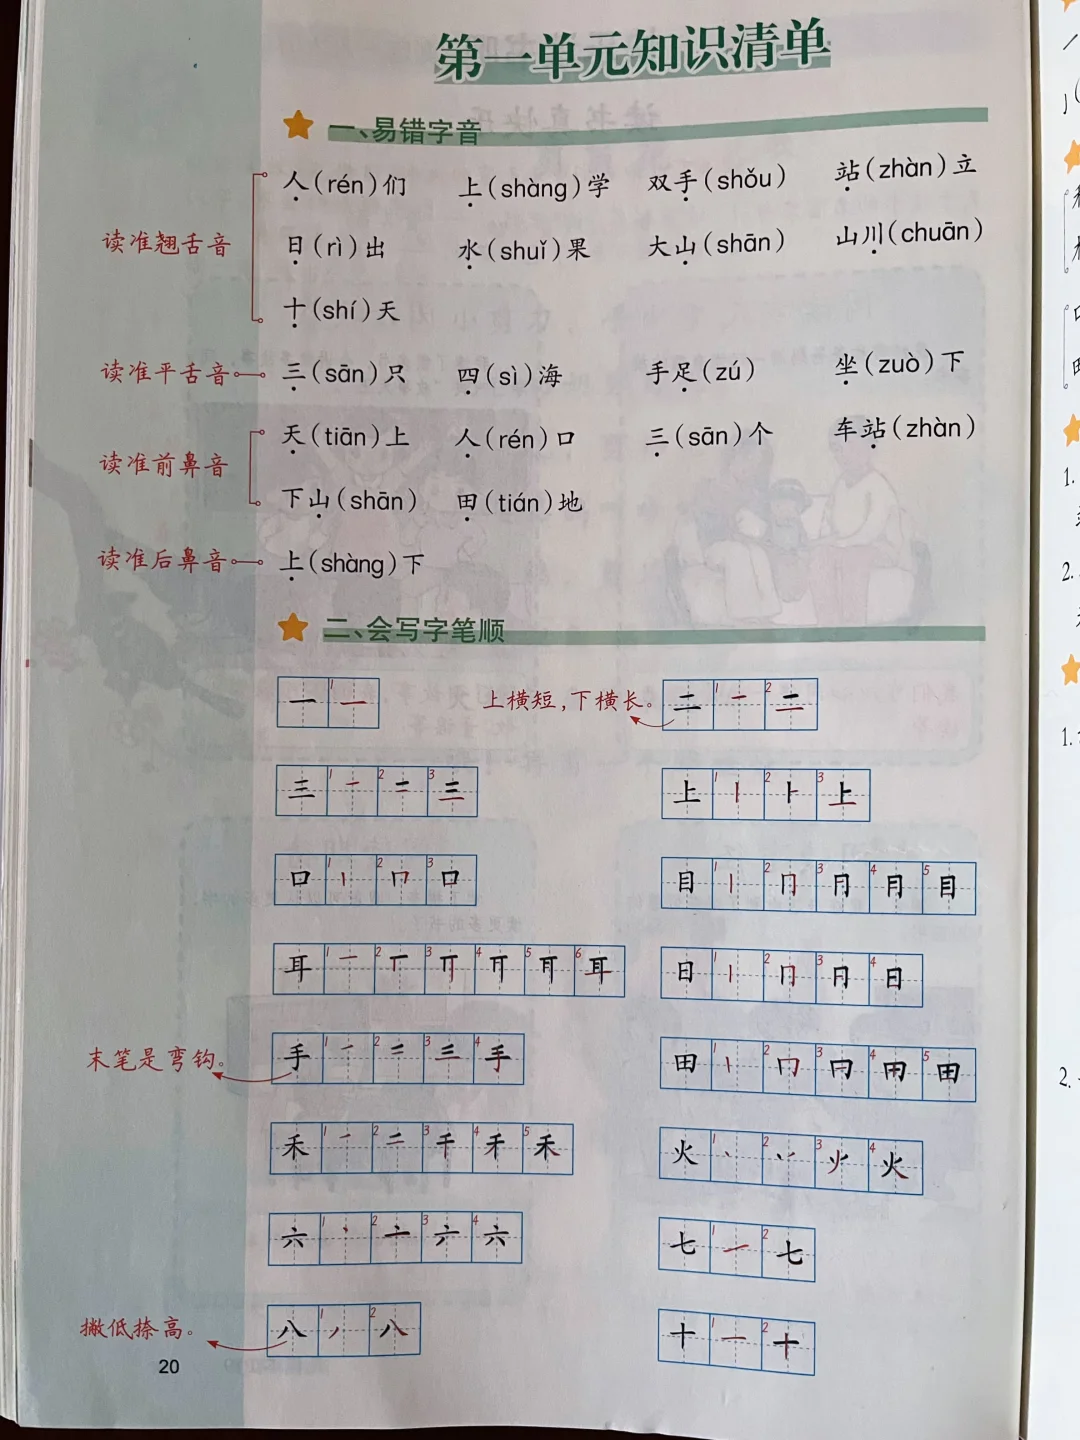 第一单元知识清单
一、易错字音
读准翘舌音
人(rén)们 上(shàng)学 双手(shǒu) 站(zhàn)立
日(rì)出 水(shuǐ)果 大山(shān) 山川(chuān)
十(shí)天
读准平舌音 三(sān)只 四(sì)海 手足(zú) 坐(zuò)下
读准前鼻音
天(tiān)上 人(rén)口 三(sān)个 车站(zhàn)
下山(shān) 田(tián)地
读准后鼻音 上(shàng)下
二、会写字笔顺
一 1 一
上横短,下横长。 二 1 一 2 二
三 1 一 2 二 3 三
上 1 丨 2 ⺊ 3 上
口 1 丨 2 冂 3 口
目 1 丨 2 冂 3 月 4 月 5 目
耳 1 一 2 丅 3 丌 4 5 6 耳
日 1 丨 2 冂 3 4 日
末笔是弯钩。 手 1 2 3 4 手
田 1 丨 2 冂 3 4 5 田
禾 1 2 3 千 4 5 禾
火 1 丶 2 3 4 火
六 1 丶 2 亠 3 4 六
七 1 一 2 七
撇低捺高。 八 1 丿 2 八
十 1 一 2 十
20